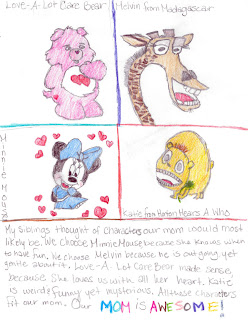 Love-A-Lot Care Bear
Melvin from Madagascar
Minnie Mouse
Katie from Horton Hears A Who
My siblings thought of characters our mom would most
likely be. We choose Minnie Mouse because she knows when
to have fun. We choose Melvin because he is outgoing yet
gentle about it. Love-A-Lot Care Bear made sense
because she loves us with all her heart. Katie
is weird & funny yet mysterious. All these characters
fit our mom. Our MOM is AWESOME!